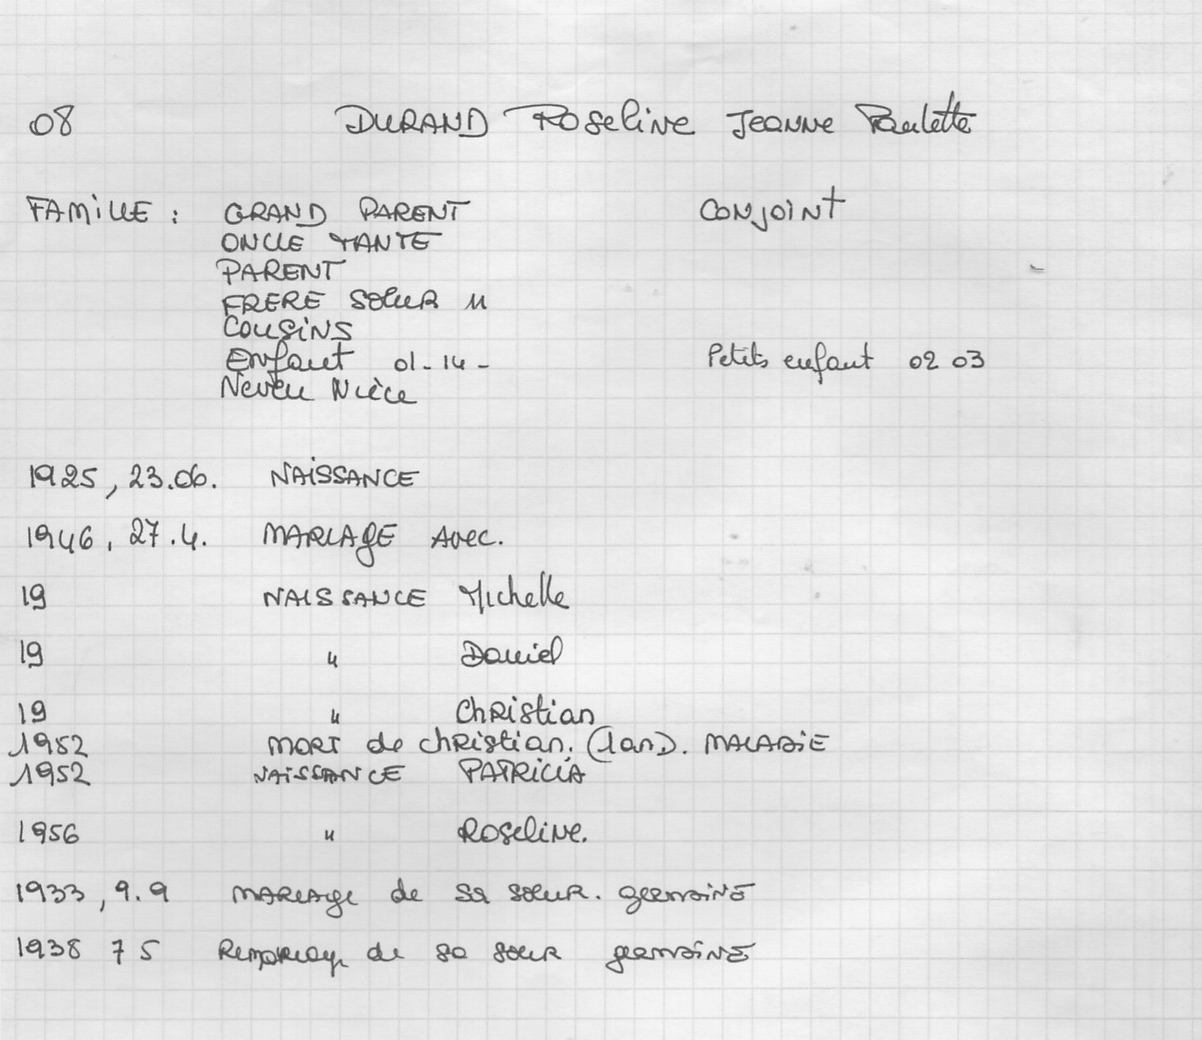 08 DURAND Roseline Jeanne Paulette
FAMILLE : GRAND PARENT CONJOINT
ONCLE TANTE
PARENT
FRERE SOEUR 11
COUSINS
Enfant 01-14- Petits enfant 02 03
Neveu Nièce
1925, 23.06. NAISSANCE
1946, 27.4. MARIAGE Avec.
19 NAISSANCE Michelle
19 " Daniel
19 " Christian
1952 MORT de christian. (1an). MALADIE
1952 NAISSANCE PATRICIA
1956 " Roseline.
1933, 9.9 MARIAGE de sa soeur. germaine
1938 7 5 Remariage de sa soeur germaine